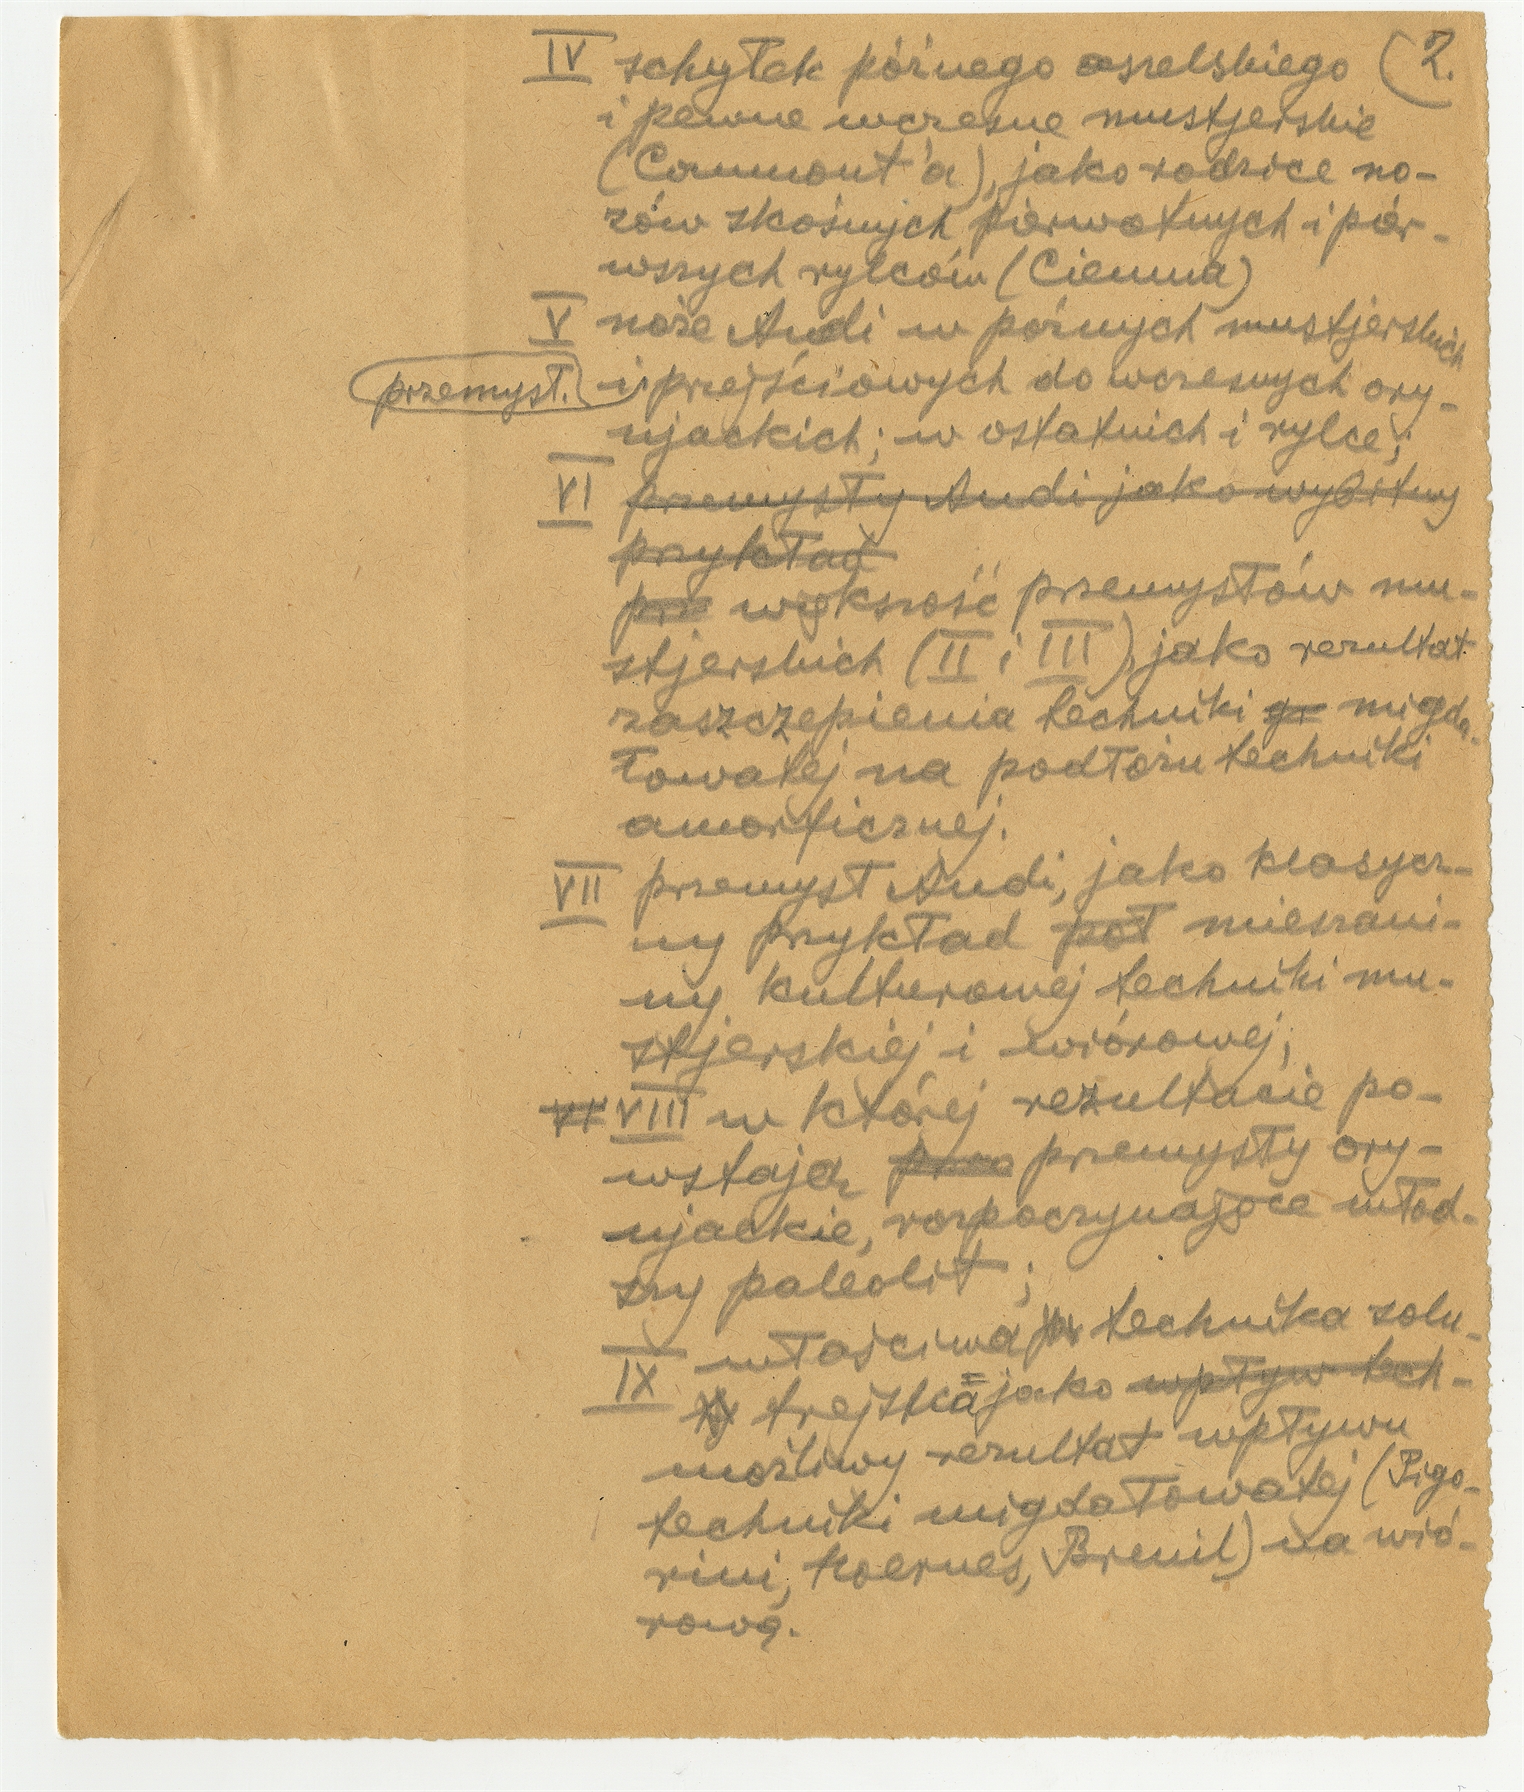 IV schyłek późnego aszelskiego (2.
i pewne wczesne mustjerskie
(Commont'a), jako rodzice no-
zów skośnych pierwotnych i pier-
wszych rylców (Ciemna)
V noże Audi w późnych mustjerskich
przemysł. i przejściowych do wczesnych ory-
njackich; w ostatnich i rylce;
VI przemysły Audi jako wybitny
przykład
prz większość przemysłów mu-
stjerskich (II i III), jako rezultat
zaszczepienia techniki migda-
łowatej na podłożu techniki
amorficznej.
VII przemysł Audi, jako klasycz-
ny przykład poł mieszani-
ny kulturowej techniki mu-
stjerskiej i wiórowej;
VI VIII w której rezultacie po-
wstają przemysły ory-
njackie, rozpoczynające młod-
szy paleolit;
IX właściwa technika solu-
trejska jako wpływ tech-
możliwy rezultat wpływu
techniki migdałowatej (Pigo-
rini, Hoernes, Breuil) na wió-
rową.